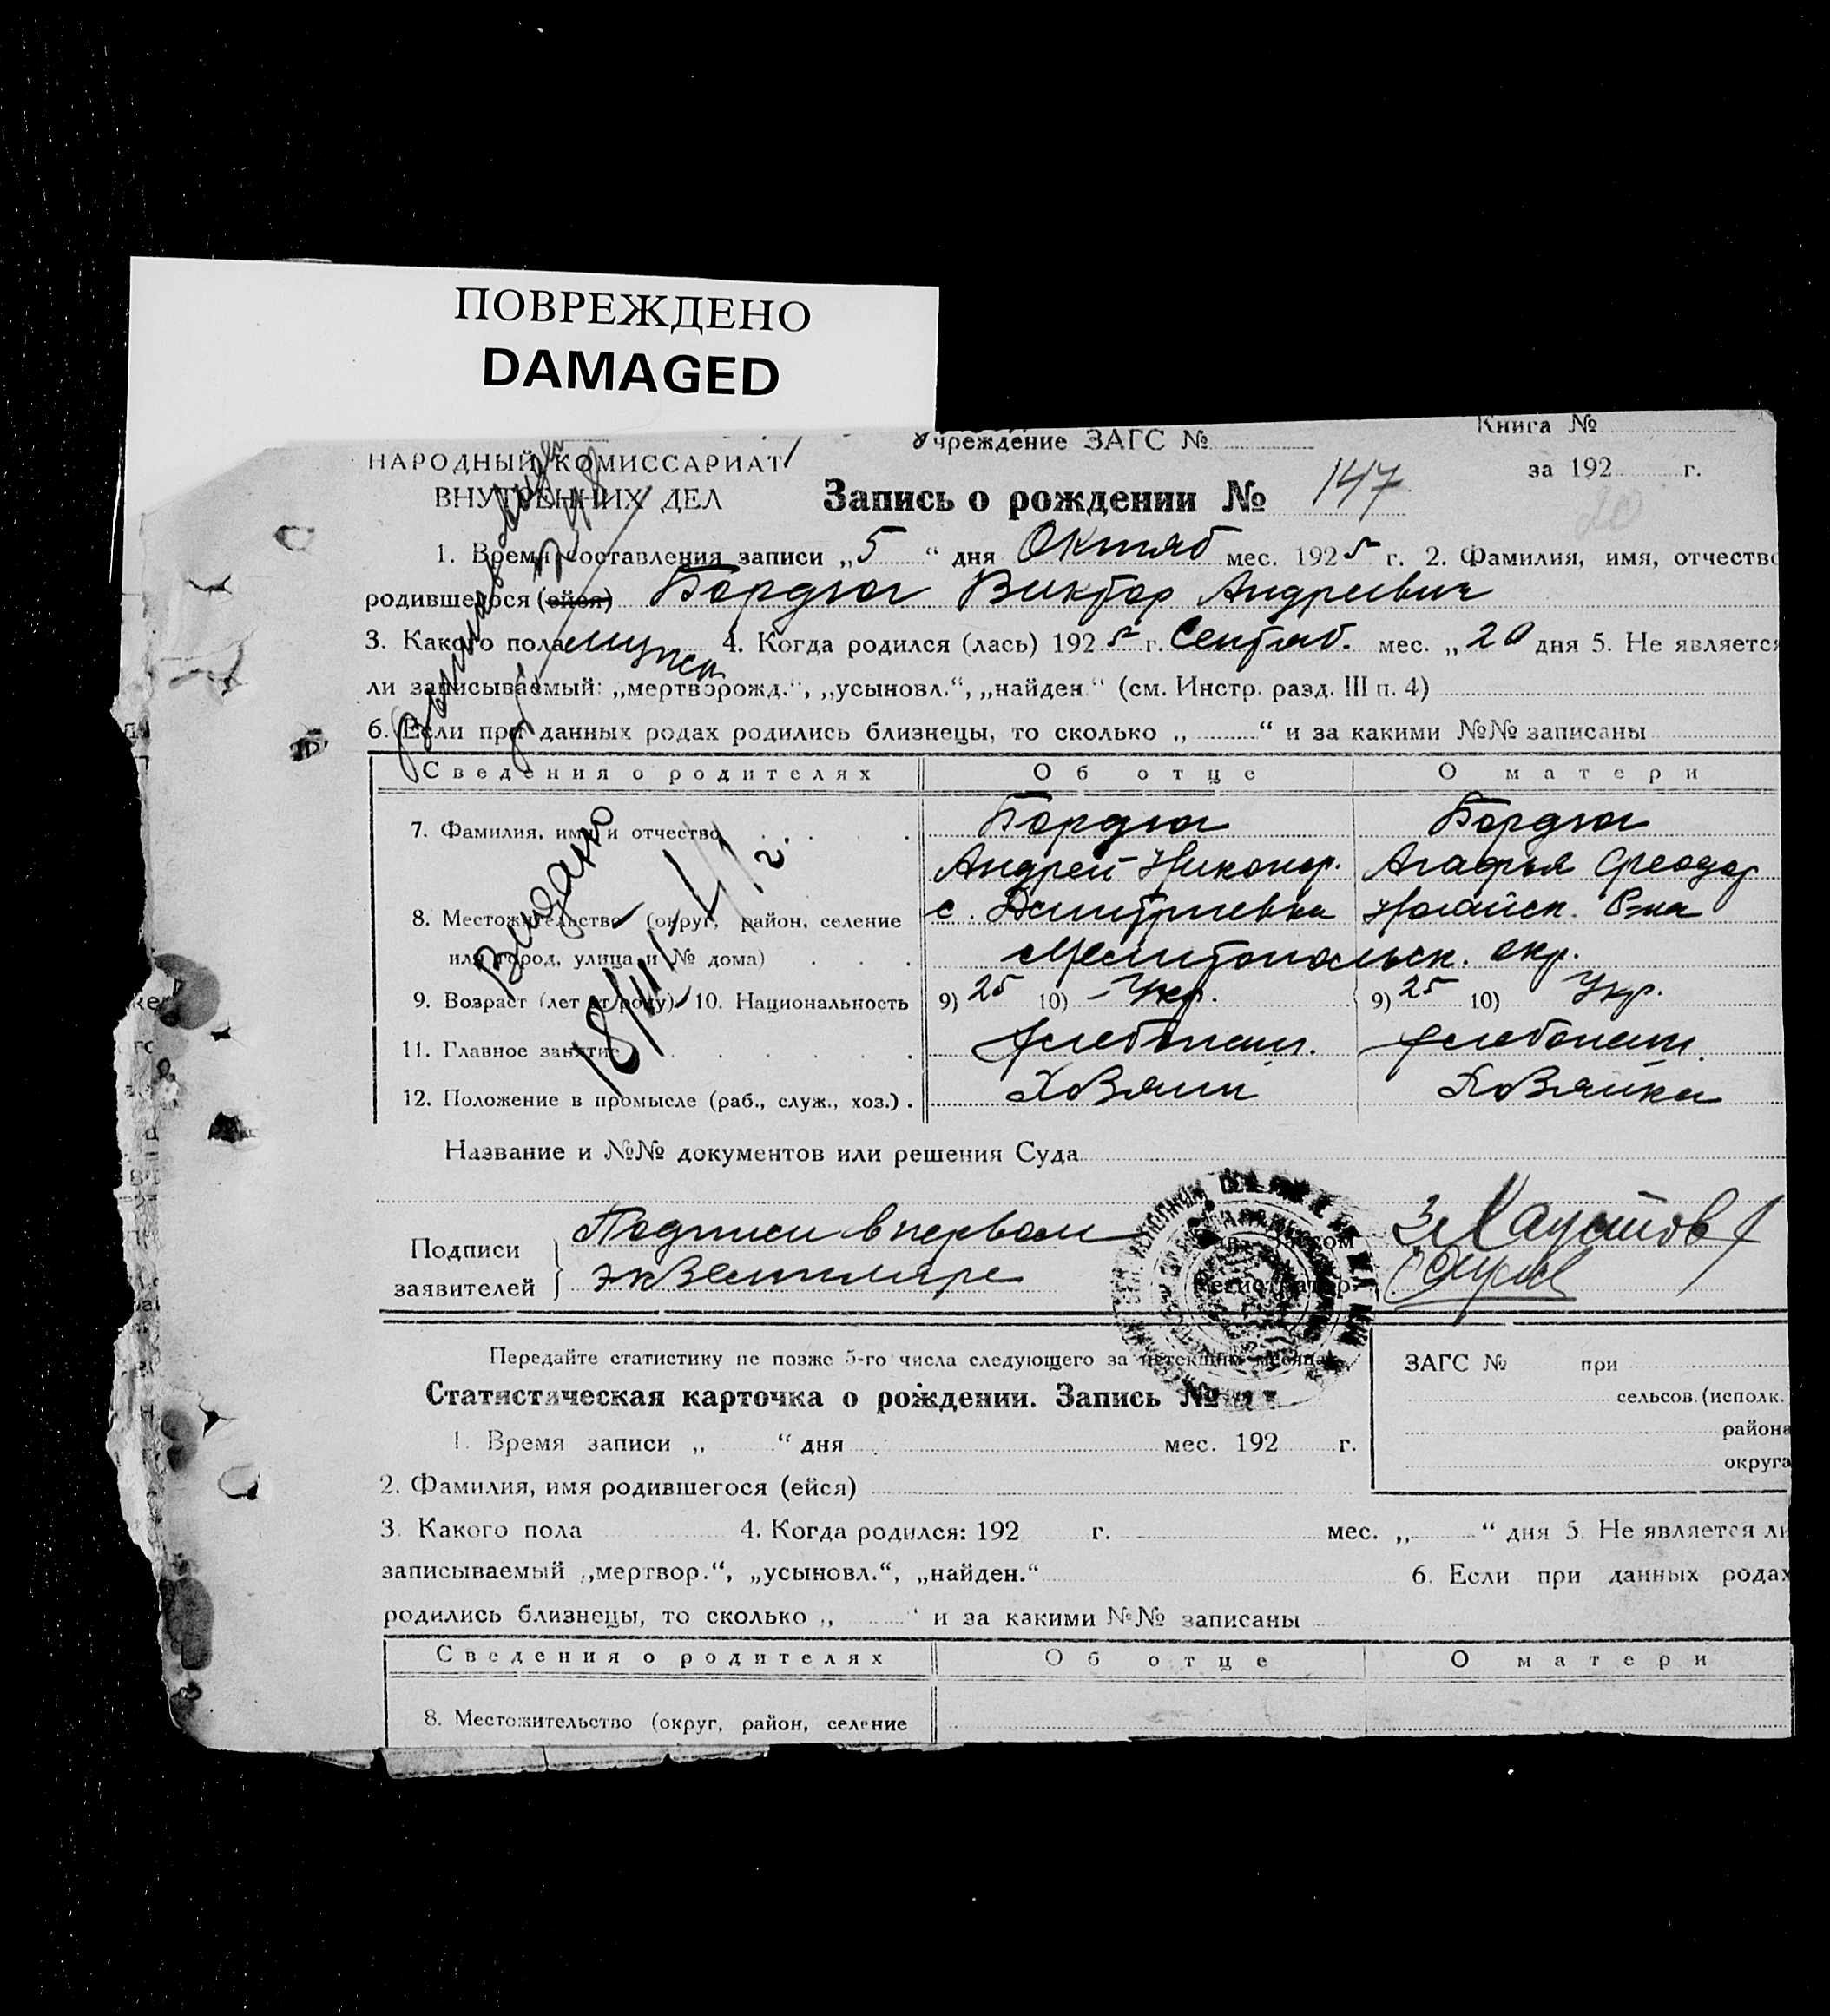 ПОВРЕЖДЕНО
DAMAGED
Учреждение ЗАГС №
Книга №
НАРОДНЫЙ КОМИССАРИАТ
ВНУТРЕННИХ ДЕЛ
за 192 г.
Запись о рождении № 147
20
1. Время составления записи „5“ дня Октяб мес. 1925 г. 2. Фамилия, имя, отчество
родившегося (ейся) Бордюг Виктор Андреевич
3. Какого пола мужск 4. Когда родился (лась) 1925 г. Сентяб. мес. „20 дня 5. Не является
ли записываемый: „мертворожд.“, „усыновл.“, „найден“ (см. Инстр. разд. III п. 4)
6. Если при данных родах родились близнецы, то сколько „ “ и за какими №№ записаны
Сведения о родителях Об отце О матери
7. Фамилия, имя и отчество Бордюг Бордюг
Андрей Никонор. Агафья Феодор
8. Местожительство (округ, район, селение с. Дмитриевка Ногайск. Р-на
или город, улица и № дома) Мелитопольск. окр.
9. Возраст (лет от роду) 10. Национальность 9) 25 10) Укр. 9) 25 10) Укр.
11. Главное занятие хлебопаш. хлебопаш.
12. Положение в промысле (раб., служ., хоз.) Хозяин Хозяйка
Выдано
18/III 41 г.
Название и №№ документов или решения Суда
Подписи заявителей
Подписи в первом
экземпляре
Хаустов
Передайте статистику не позже 5-го числа следующего за истекшим месяца
Статистическая карточка о рождении. Запись №
ЗАГС № при
сельсов. (исполк.
района
округа
1. Время записи „ “ дня мес. 192 г.
2. Фамилия, имя родившегося (ейся)
3. Какого пола 4. Когда родился: 192 г. мес. „ “ дня 5. Не является ли
записываемый „мертвор.“, „усыновл.“, „найден.“ 6. Если при данных родах
родились близнецы, то сколько „ “ и за какими №№ записаны
Сведения о родителях Об отце О матери
8. Местожительство (округ, район, селение